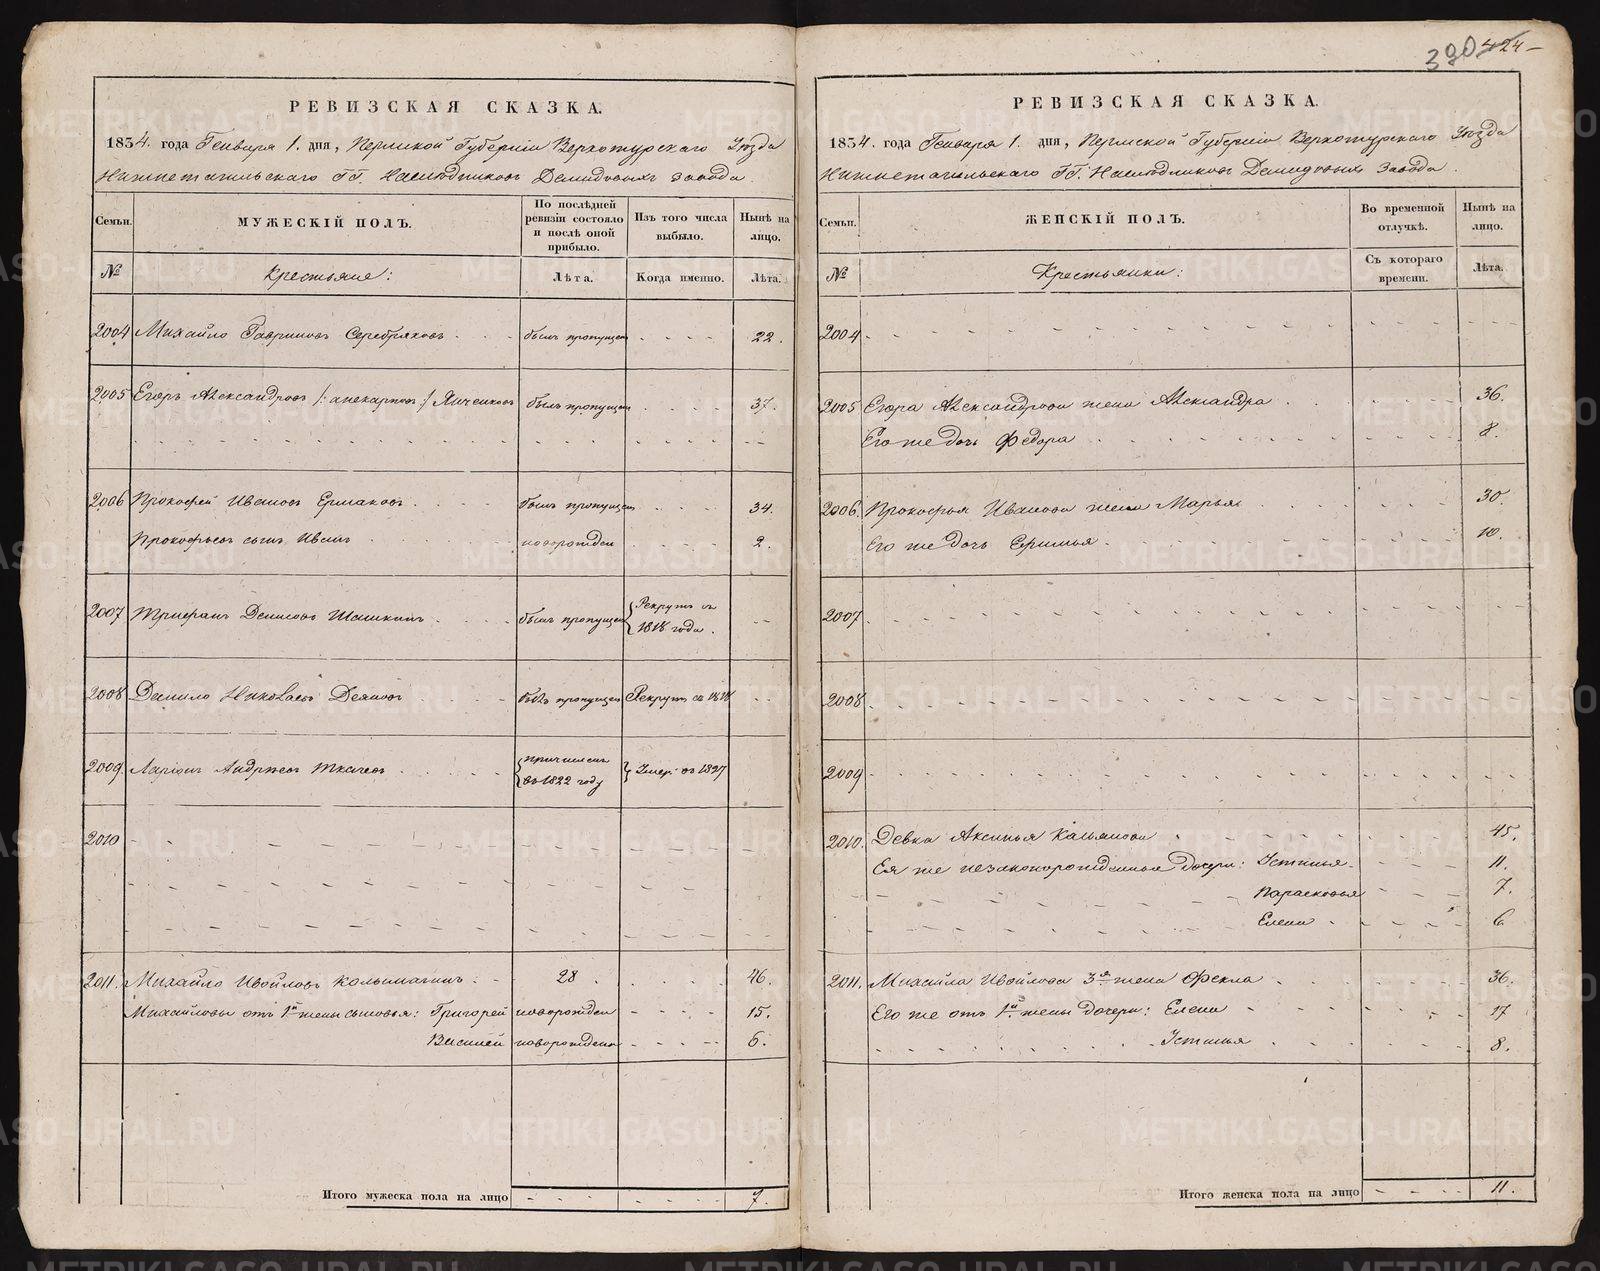 390 424
РЕВИЗСКАЯ СКАЗКА.
1834. года Генваря 1. дня, Пермской Губерніи Верхотурскаго Уѣзда
Нижнетагильскаго ГГ. Наслѣдниковъ Демидовыхъ завода
Семьи. МУЖЕСКІЙ ПОЛЪ. По послѣдней ревизіи состояло и послѣ оной прибыло. Изъ того числа выбыло. Нынѣ на лицо.
№ Крестьяне: Лѣта. Когда именно. Лѣта.
2004 Михайло Гавриловъ Серебряковъ был пропущен 22.
2005 Егоръ Александровъ /: :/ был пропущен 37.
2006 Прокофей Ивановъ Ермаковъ был пропущен 34.
Прокофьевъ сынъ Иванъ новорожден 2.
2007 Трифанъ Денисовъ был пропущен Рекрутъ съ
1818 года.
2008 Данило Николаевъ был пропущен Рекрутъ съ 1818
2009 Ларіонъ Андрѣевъ Ткачевъ причислен
въ 1822 году Умер. въ 1827
2010
2011. Михайло Ивойловъ Колымагинъ 28 46.
Михайловы от 1й жены сыновья: Григорей новорожден 15.
Василей новорожден 6.
Итого мужеска пола на лицо 7.
РЕВИЗСКАЯ СКАЗКА.
1834. года Генваря 1. дня, Пермской Губерніи Верхотурскаго Уѣзда
Нижнетагильскаго ГГ. Наслѣдниковъ Демидовыхъ завода.
Семьи. ЖЕНСКІЙ ПОЛЪ. Во временной отлучкѣ. Нынѣ на лицо.
№ Крестьянки: Съ котораго времени. Лѣта.
2004
2005 Егора Александрова жена Александра 36.
Его же дочь Федора 8.
2006. Прокофья Иванова жена Марья 30.
Его же дочь 10.
2007
2008
2009
2010. Девка Аксинья Касьянова 45.
Ея же незаконорожденныя дочери: Устинья 11.
Парасковья 7.
Елена 6
2011. Михайла Ивойлова 3я жена Фекла 36.
Его же отъ 1й жены дочери: Елена 17
Устинья 8.
Итого женска пола на лицо 11.
METRIKI.GASO-URAL.RU